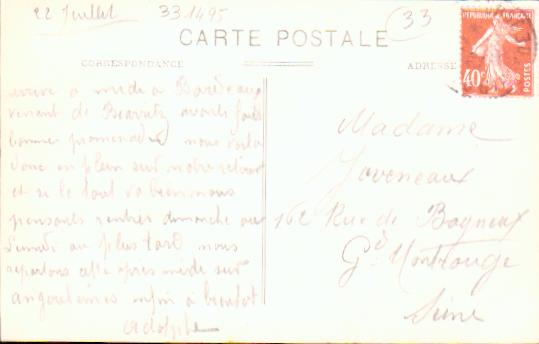 22 Juillet 33 1495
33
CARTE POSTALE
CORRESPONDANCE
ADRESSE
REPUBLIQUE FRANÇAISE
40c
POSTES
arrivé à midi à Bordeaux
venant de Biarritz avons fait
bonne promenade nous voila
donc en plein sur notre retour
et si le tout va bien nous
pensons rentrer dimanche ou
Lundi au plus tard nous
repartons cette après midi sur
angoulemes enfin à bientot
adolphe
Madame
Joveneaux
162 Rue de Bagneux
Gd Montrouge
Seine